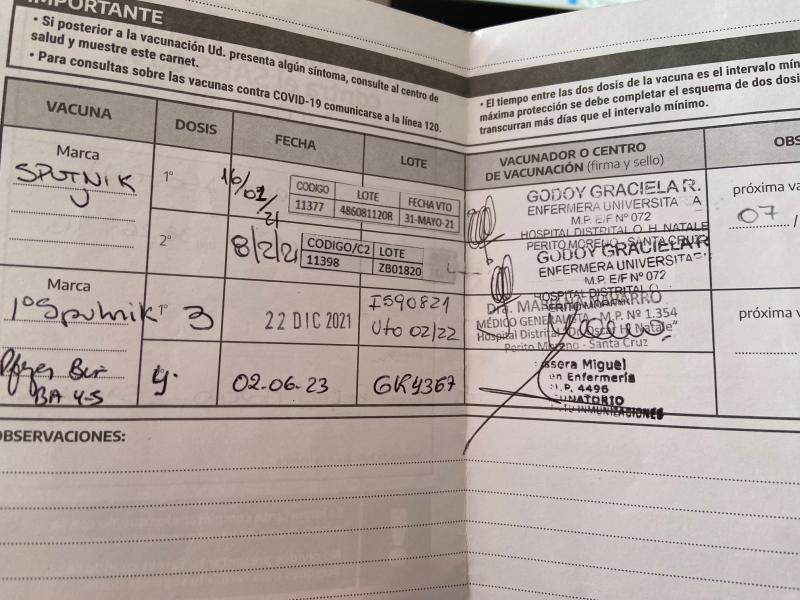 IMPORTANTE
• Si posterior a la vacunación Ud. presenta algún síntoma, consulte al centro de
salud y muestre este carnet.
• Para consultas sobre las vacunas contra COVID-19 comunicarse a la línea 120.
• El tiempo entre las dos dosis de la vacuna es el intervalo mín
máxima protección se debe completar el esquema de dos dosi
transcurran más días que el intervalo mínimo.
VACUNA DOSIS FECHA LOTE VACUNADOR O CENTRO
DE VACUNACIÓN (firma y sello) OBS
Marca
SPUTNIK
V
1°
16/01/21
CODIGO LOTE FECHA VTO
11377 486081120R 31-MAYO-21
GODOY GRACIELA R.
ENFERMERA UNIVERSITA A
M.P. E/F Nº 072
HOSPITAL DISTRITAL O. H. NATALE
PERITO MORENO - SANTA CRUZ
próxima va
07 /
2°
8/2/21
CODIGO/C2 LOTE
11398 ZB01820
GODOY GRACIELA R
ENFERMERA UNIVERSITA
M.P. E/F Nº 072
HOSPITAL DISTRITAL O
Marca
1° Sputnik
1° 3
22 DIC 2021
I590821
Vto 02/22
Dra.
MÉDICO GENERALISTA - M.P. Nº 1.354
Hospital Distrital "Dr. Oscar H. Natale"
Perito Moreno - Santa Cruz
próxima va
Pfyzer Biv
BA 4-5
4.
02-06-23
GK4367
ssera Miguel
en Enfermería
.P. 4496
UNATORIO
INMUNIZACIONES
OBSERVACIONES: